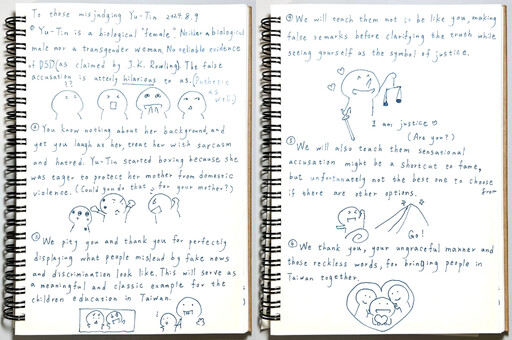 To those misjudging Yu-Tin 2024.8.9
① Yu-Tin is a biological "female". Neither a biological
male nor a transgender woman. No reliable evidence
of DSD (as claimed by J.K. Rowling). The false
accusation is utterly hilarious to us. (Pathetic
as well.)
??
② You know nothing about her background, and
yet you laugh at her, treat her with sarcasm
and hatred. Yu-Tin started boxing because she
was eager to protect her mother from domestic
violence. (Could you do that for your mother?)
③ We pity you and thank you for perfectly
displaying what people mislead by fake news
and discrimination look like. This will serve as
a meaningful and classic example for the
children education in Taiwan.
④ We will teach them not to be like you, making
false remarks before clarifying the truth while
seeing yourself as the symbol of justice.
I am justice
(Are you?)
⑤ We will also teach them sensational
accusation might be a shortcut to fame,
but unfortunately not the best one to choose
from
if there are other options.
Go!
⑥ We thank you, your ungraceful manner and
those reckless words, for bringing people in
Taiwan together.